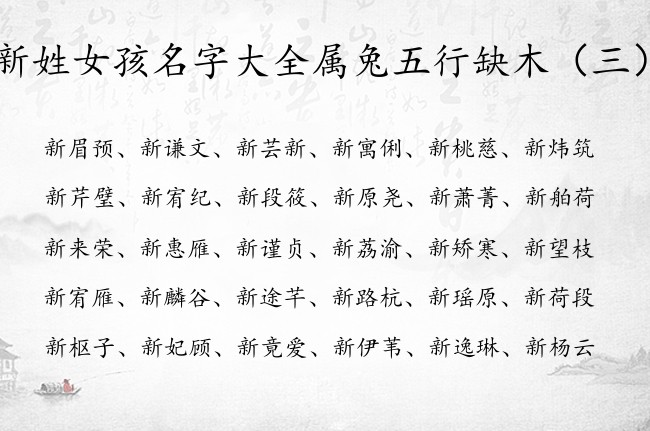 新姓女孩名字大全属兔五行缺木（三）
新眉预、新谦文、新芸新、新寓俐、新桃慈、新炜筑
新芹璧、新宥纪、新段筱、新原尧、新萧菁、新舶荷
新来荣、新惠雁、新谨贞、新荔渝、新矫寒、新望枝
新宥雁、新麟谷、新途芊、新路杭、新瑶原、新荷段
新枢子、新妃顾、新竟爱、新伊苇、新逸琳、新杨云